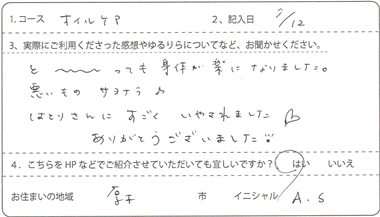 1.コース オイルケア 2、記入日 2/12
3、実際にご利用くださった感想やゆるりらについてなど、お聞かせください。
と〜〜〜っても身体が楽になりました。
悪いもの サヨナラ♪
はとりさんに すごく いやされました♡
ありがとうございました
4. こちらをHPなどでご紹介させていただいても宜しいですか? はい いいえ
お住まいの地域 厚木 市 イニシャル A.S